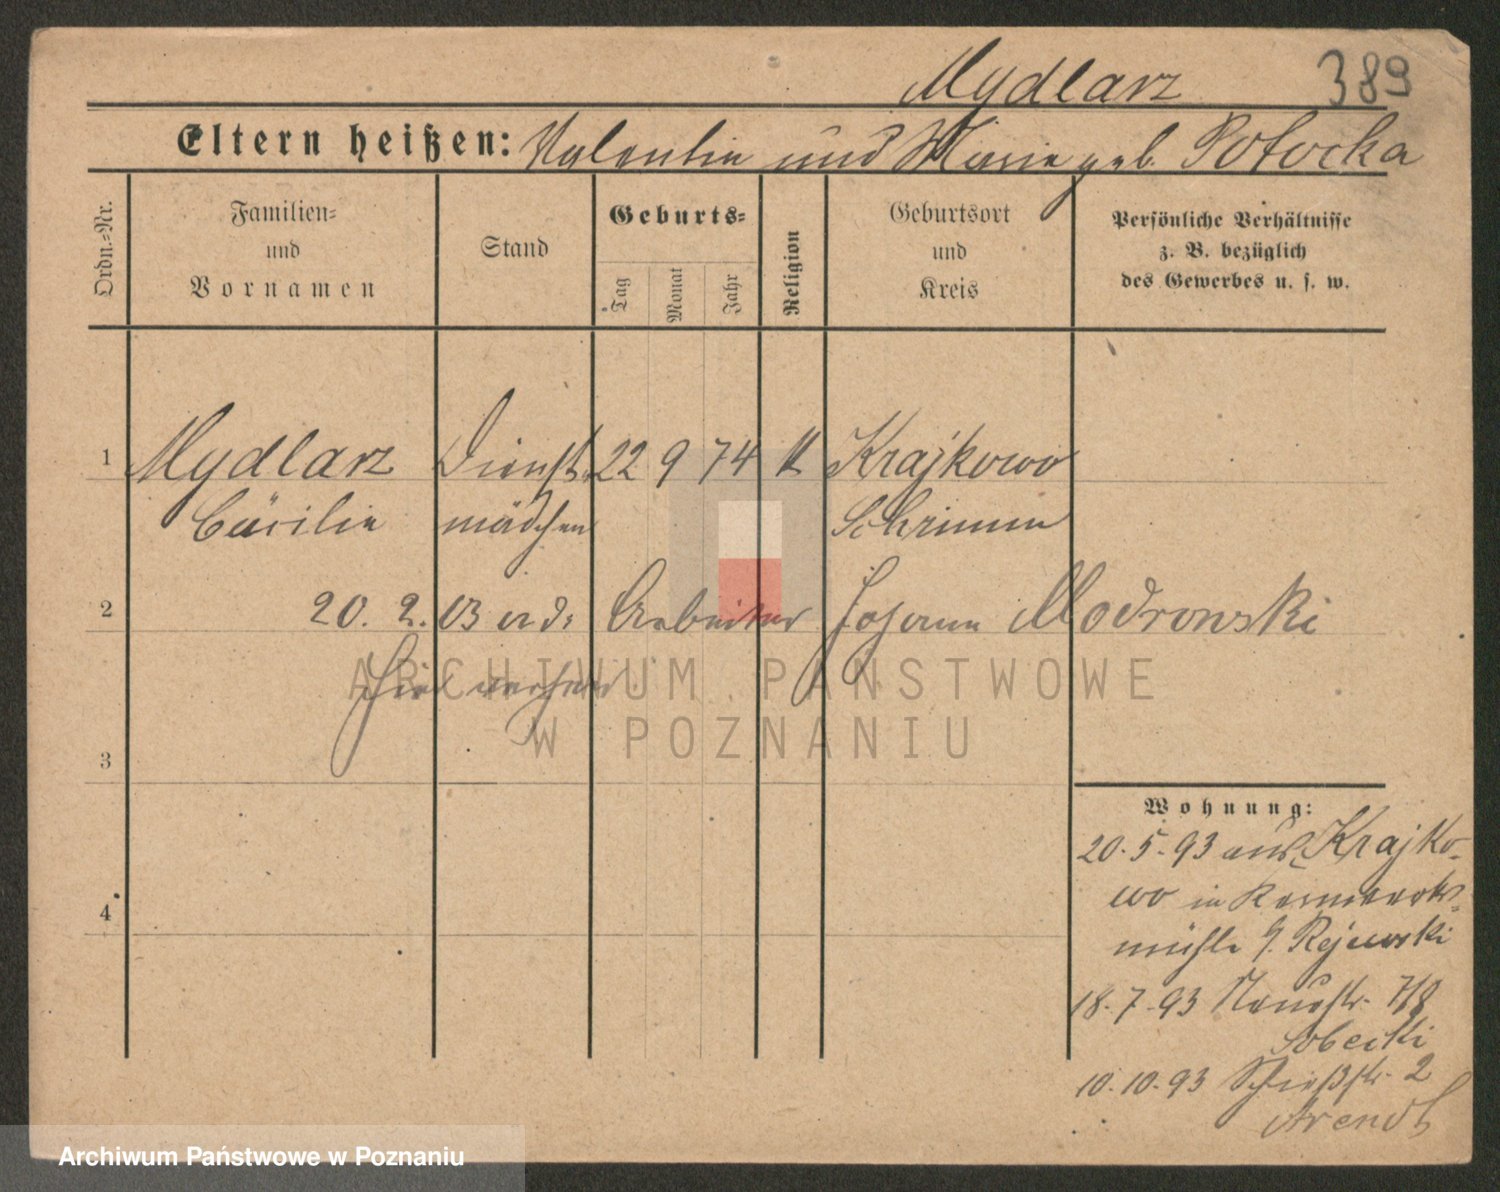 Mydlarz 389
Eltern heißen: Valentin und Marie geb. Potocka
Ordn.=Nr.
Familien=
und
Vornamen
Stand
Geburts=
Tag
Monat
Jahr
Religion
Geburtsort
und
Kreis
Persönliche Verhältnisse
z. B. bezüglich
des Gewerbes u. s. w.
1 Mydlarz Dienst= 22 9 74 K Krajkowo
Cäcilie mädchen Schrimm
2 20. 2. 03 Arbeiter Johann Modrowski
hier
3
4
Wohnung:
20.5.93 aus Krajko-
wo in
mühle Rejewski
18.7.93 Neuestr. 7/8
Sobecki
10.10.93 Schießstr. 2
Arendt
ARCHIWUM PAŃSTWOWE
W POZNANIU
Archiwum Państwowe w Poznaniu